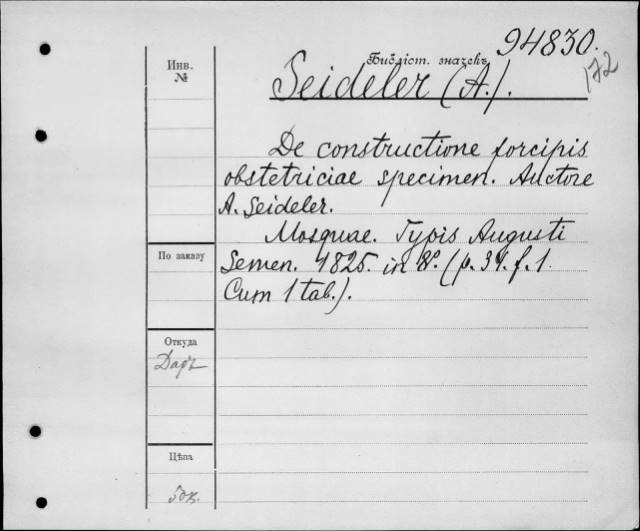 94830.
172
Инв.
№
Библіот. значекъ
Seideler (A.).
De constructione forcipis
obstetriciae specimen. Auctore
A. Seideler.
Mosquae. Typis Augusti
Semen. 1825. in 8º. (p. 34. f. 1.
Cum 1 tab.).
По заказу
Откуда
Даръ
Цѣна
50к.